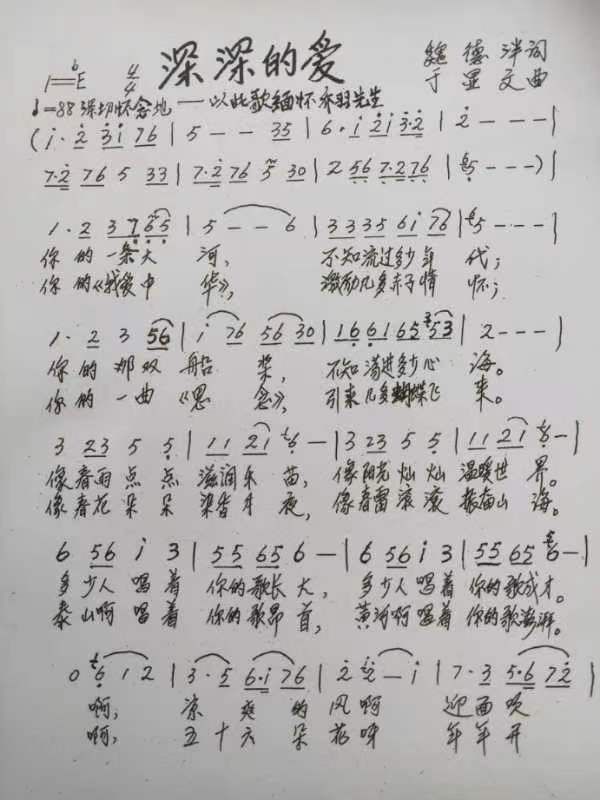 深深的爱
1=♭E 4/4 魏德泮词
♩=88 深切怀念地 ——以此歌缅怀乔羽先生 于显文曲
(i·2 3i 76 | 5 - - 35 | 6·i 2i 3·2 | 2 - - - |
7·2 76 5 33 | 7·2 76 5 30 | 2 56 7·2 76 | 5 - - -)|
1·2 3 7 65 | 5 - - 6 | 33 35 6i 76 | 5 - - - |
你的一条大河, 不知流过多少年代;
你的《我爱中华》, 激励几多赤子情怀;
1·2 3 56 | i 76 56 30 | 16 61 65 53 | 2 - - - |
你的那双船桨, 不知荡进多少心海。
你的一曲《思念》, 引来几多蝴蝶飞来。
3 23 5 5 | 11 21 6 - | 3 23 5 5 | 11 21 6 - |
像春雨点点滋润禾苗, 像阳光灿灿温暖世界。
像春花朵朵染香月夜, 像春雷滚滚振奋山海。
6 56 i 3 | 55 65 6 - | 6 56 i 3 | 55 65 6 - |
多少人唱着你的歌长大, 多少人唱着你的歌成才。
泰山啊唱着你的歌昂首, 黄河啊唱着你的歌澎湃。
0 6 1 2 | 3·5 6·i 76 | 2 2 - i | 7·3 5·6 72 |
啊, 凉爽的风啊迎面吹
啊, 五十六朵花呀年年开